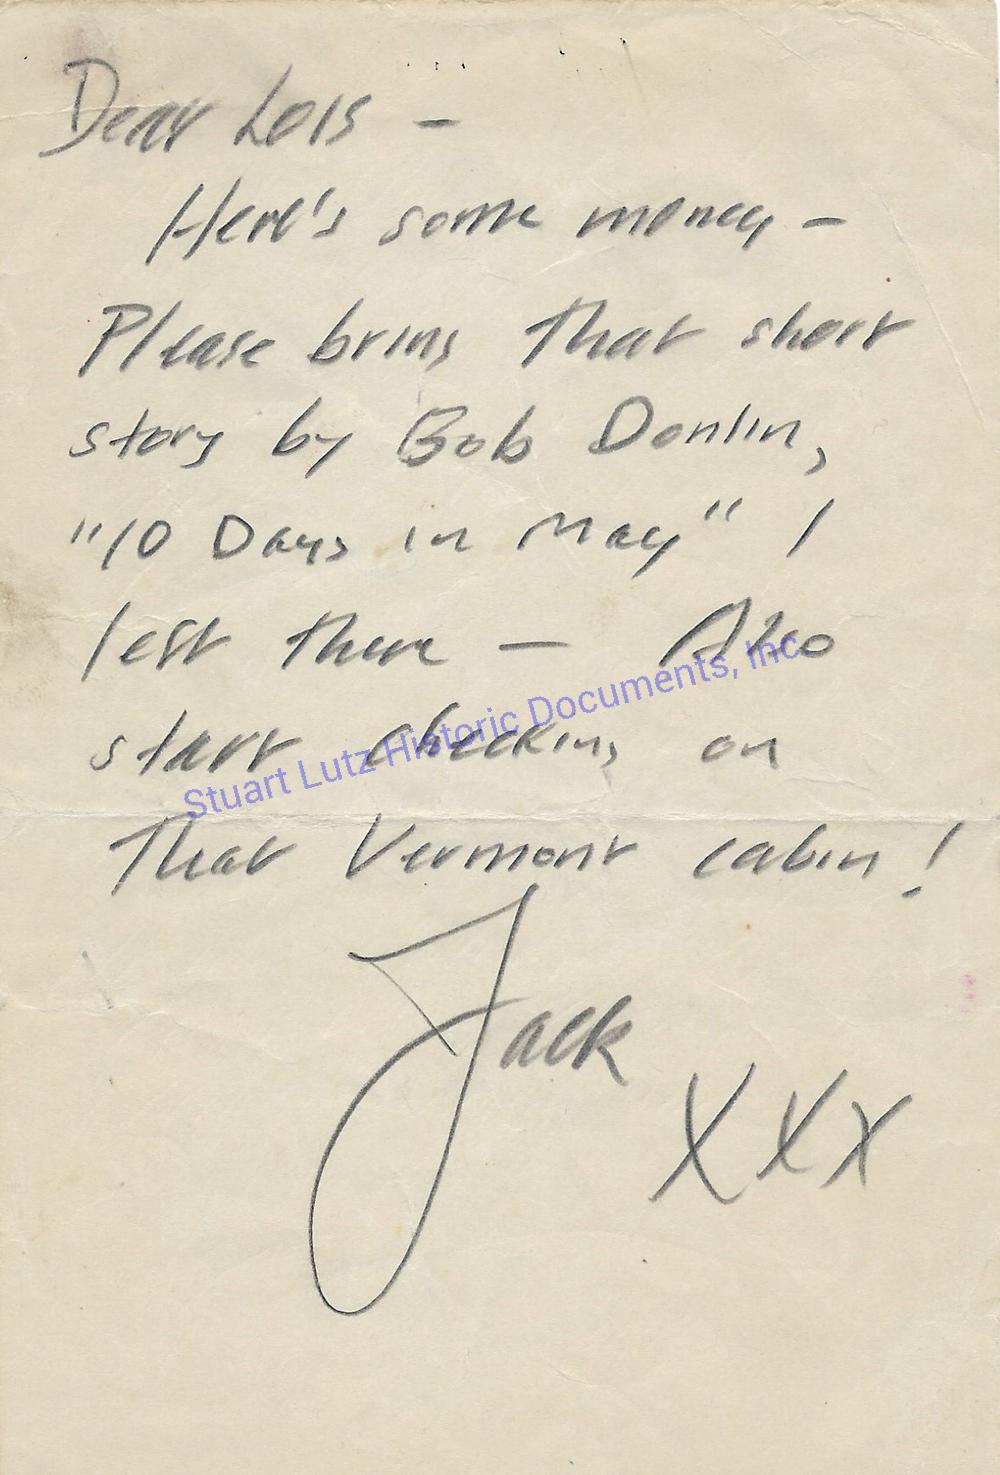 Dear Lois –
Here's some money –
Please bring that short
story by Bob Donlin,
"10 Days in May" I
left there — Also
start checking on
that Vermont cabin!
Jack
XXX
Stuart Lutz Historic Documents, Inc.